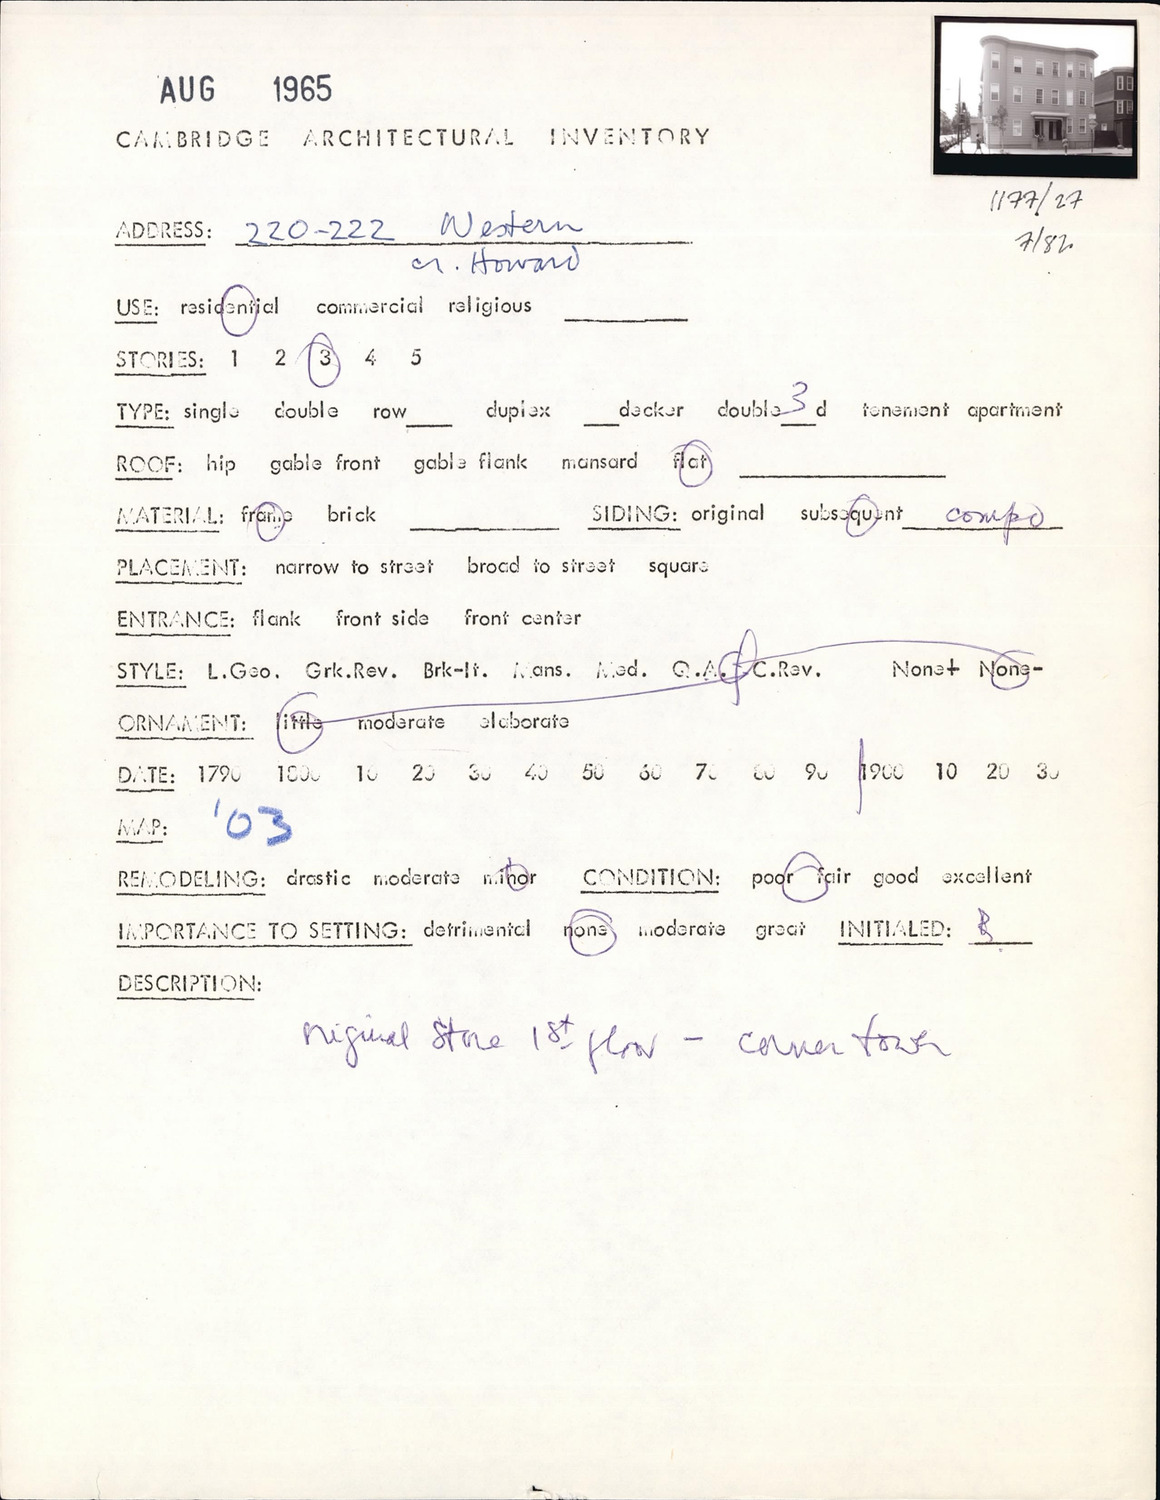 AUG 1965
CAMBRIDGE ARCHITECTURAL INVENTORY
1177/27
7/82
ADDRESS: 220-222 Western
cr. Howard
USE: residential commercial religious
STORIES: 1 2 3 4 5
TYPE: single double row___ duplex ___decker double 3 d tenement apartment
ROOF: hip gable front gable flank mansard flat
MATERIAL: frame brick SIDING: original subsequent compo
PLACEMENT: narrow to street broad to street square
ENTRANCE: flank front side front center
STYLE: L.Geo. Grk.Rev. Brk-It. Mans. Med. Q.A. C.Rev. None+ None-
ORNAMENT: little moderate elaborate
DATE: 1790 1800 10 20 30 40 50 60 70 80 90 1900 10 20 30
MAP: '03
REMODELING: drastic moderate minor CONDITION: poor fair good excellent
IMPORTANCE TO SETTING: detrimental none moderate great INITIALED:
DESCRIPTION:
original Store 1st floor - corner tower